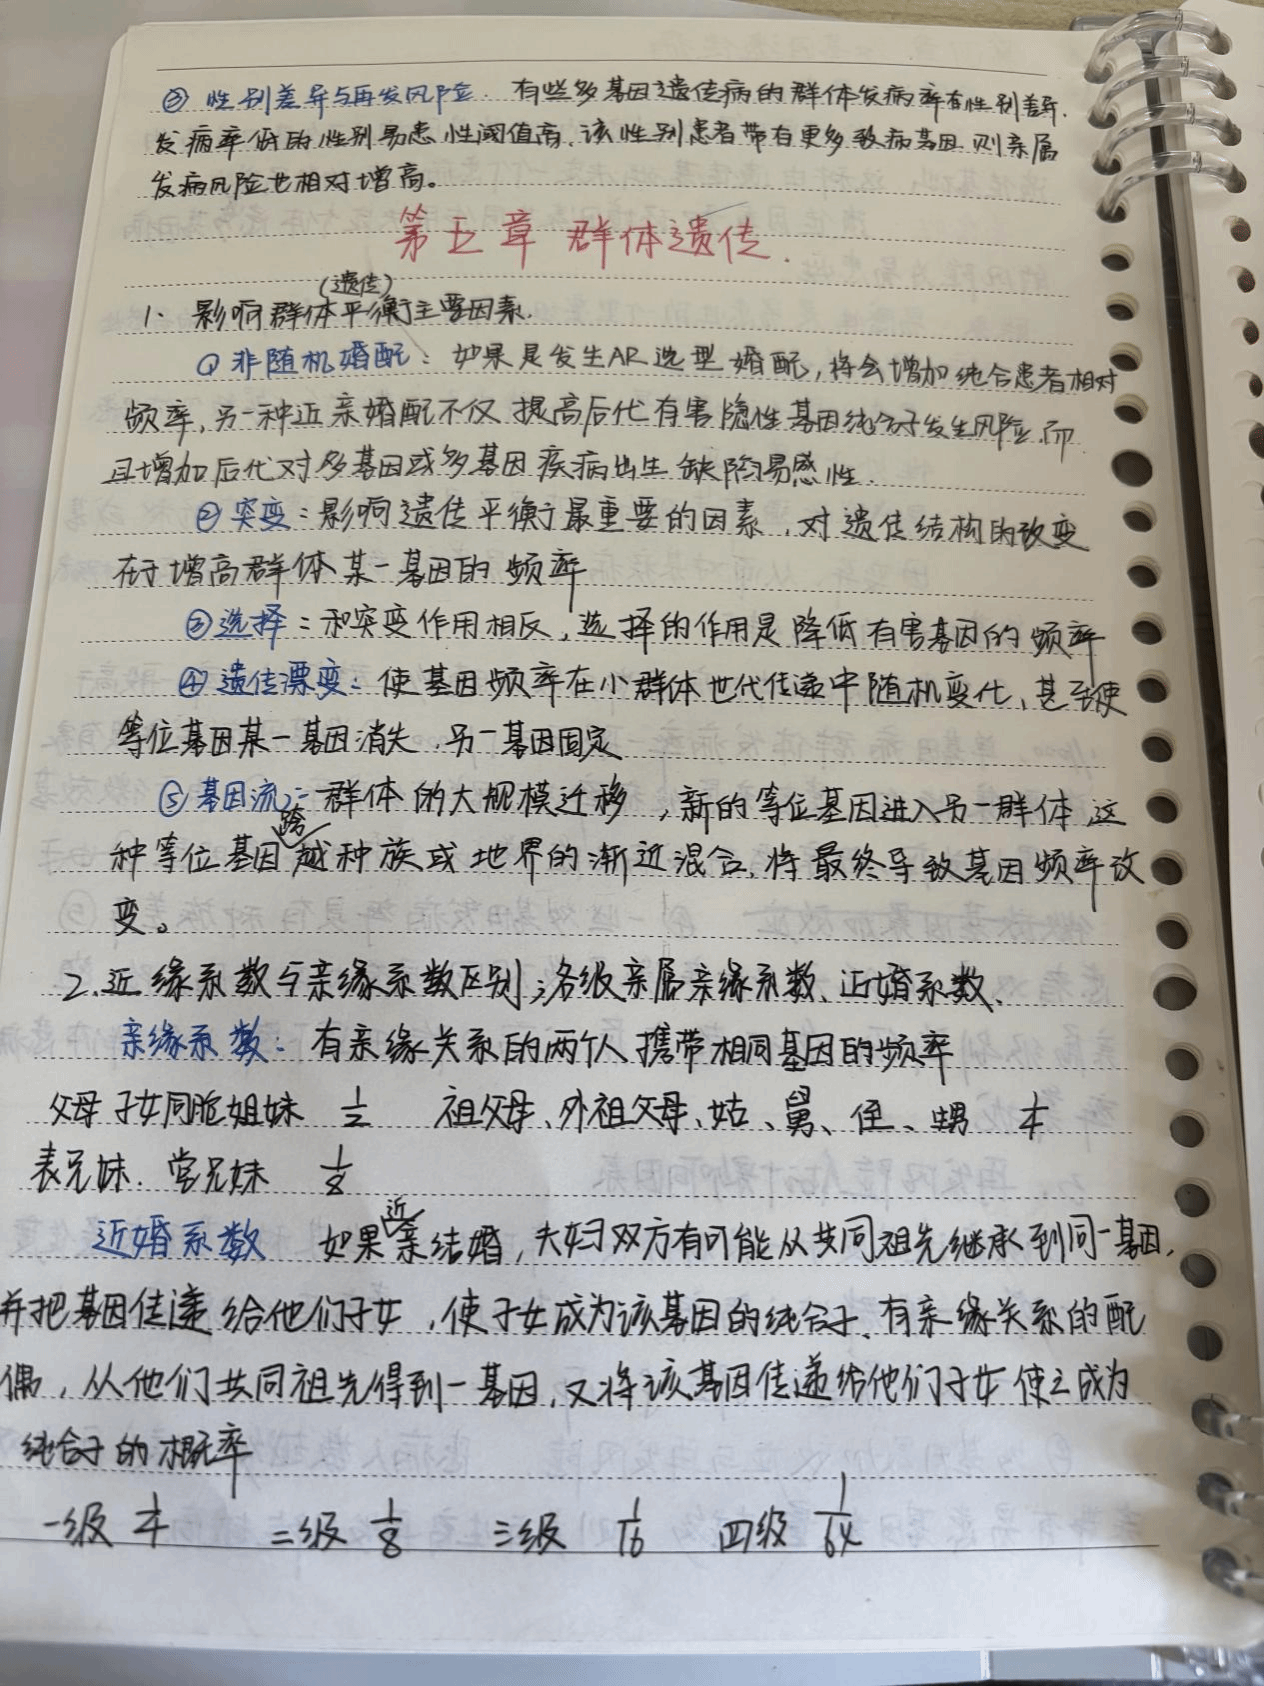 ③ 性别差异与再发风险. 有些多基因遗传病的群体发病率有性别差异.
发病率低的性别易患性阈值高,该性别患者带有更多致病基因 则亲属
发病风险也相对增高。
第五章 群体遗传.
(遗传)
1. 影响群体平衡主要因素.
① 非随机婚配: 如果是发生AR选型婚配,将会增加纯合患者相对
频率,另一种近亲婚配不仅提高后代有害隐性基因纯合子发生风险,而
且增加后代对多基因或多基因疾病出生缺陷易感性.
② 突变:影响遗传平衡最重要的因素,对遗传结构的改变
在于增高群体某一基因的频率
③ 选择:和突变作用相反,选择的作用是降低有害基因的频率
④ 遗传漂变:使基因频率在小群体世代传递中随机变化、甚至使
等位基因某一基因消失,另一基因固定
⑤ 基因流:一群体的大规模迁移,新的等位基因进入另一群体,这
种等位基因跨越种族或地界的渐近混合,将最终导致基因频率改
变。
2.近缘系数与亲缘系数区别;各级亲属亲缘系数、近婚系数、
亲缘系数:有亲缘关系的两个人携带相同基因的频率
父母子女同胞姐妹 1/2 祖父母、外祖父母、姑、舅、侄、甥 1/4
表兄妹.堂兄妹 1/8
近婚系数 如果近亲结婚,夫妇双方有可能从共同祖先继承到同一基因,
并把基因传递给他们子女,使子女成为该基因的纯合子、有亲缘关系的配
偶,从他们共同祖先得到一基因,又将该基因传递给他们子女使之成为
纯合子的概率
一级 1/4 二级 1/8 三级 1/16 四级 1/64